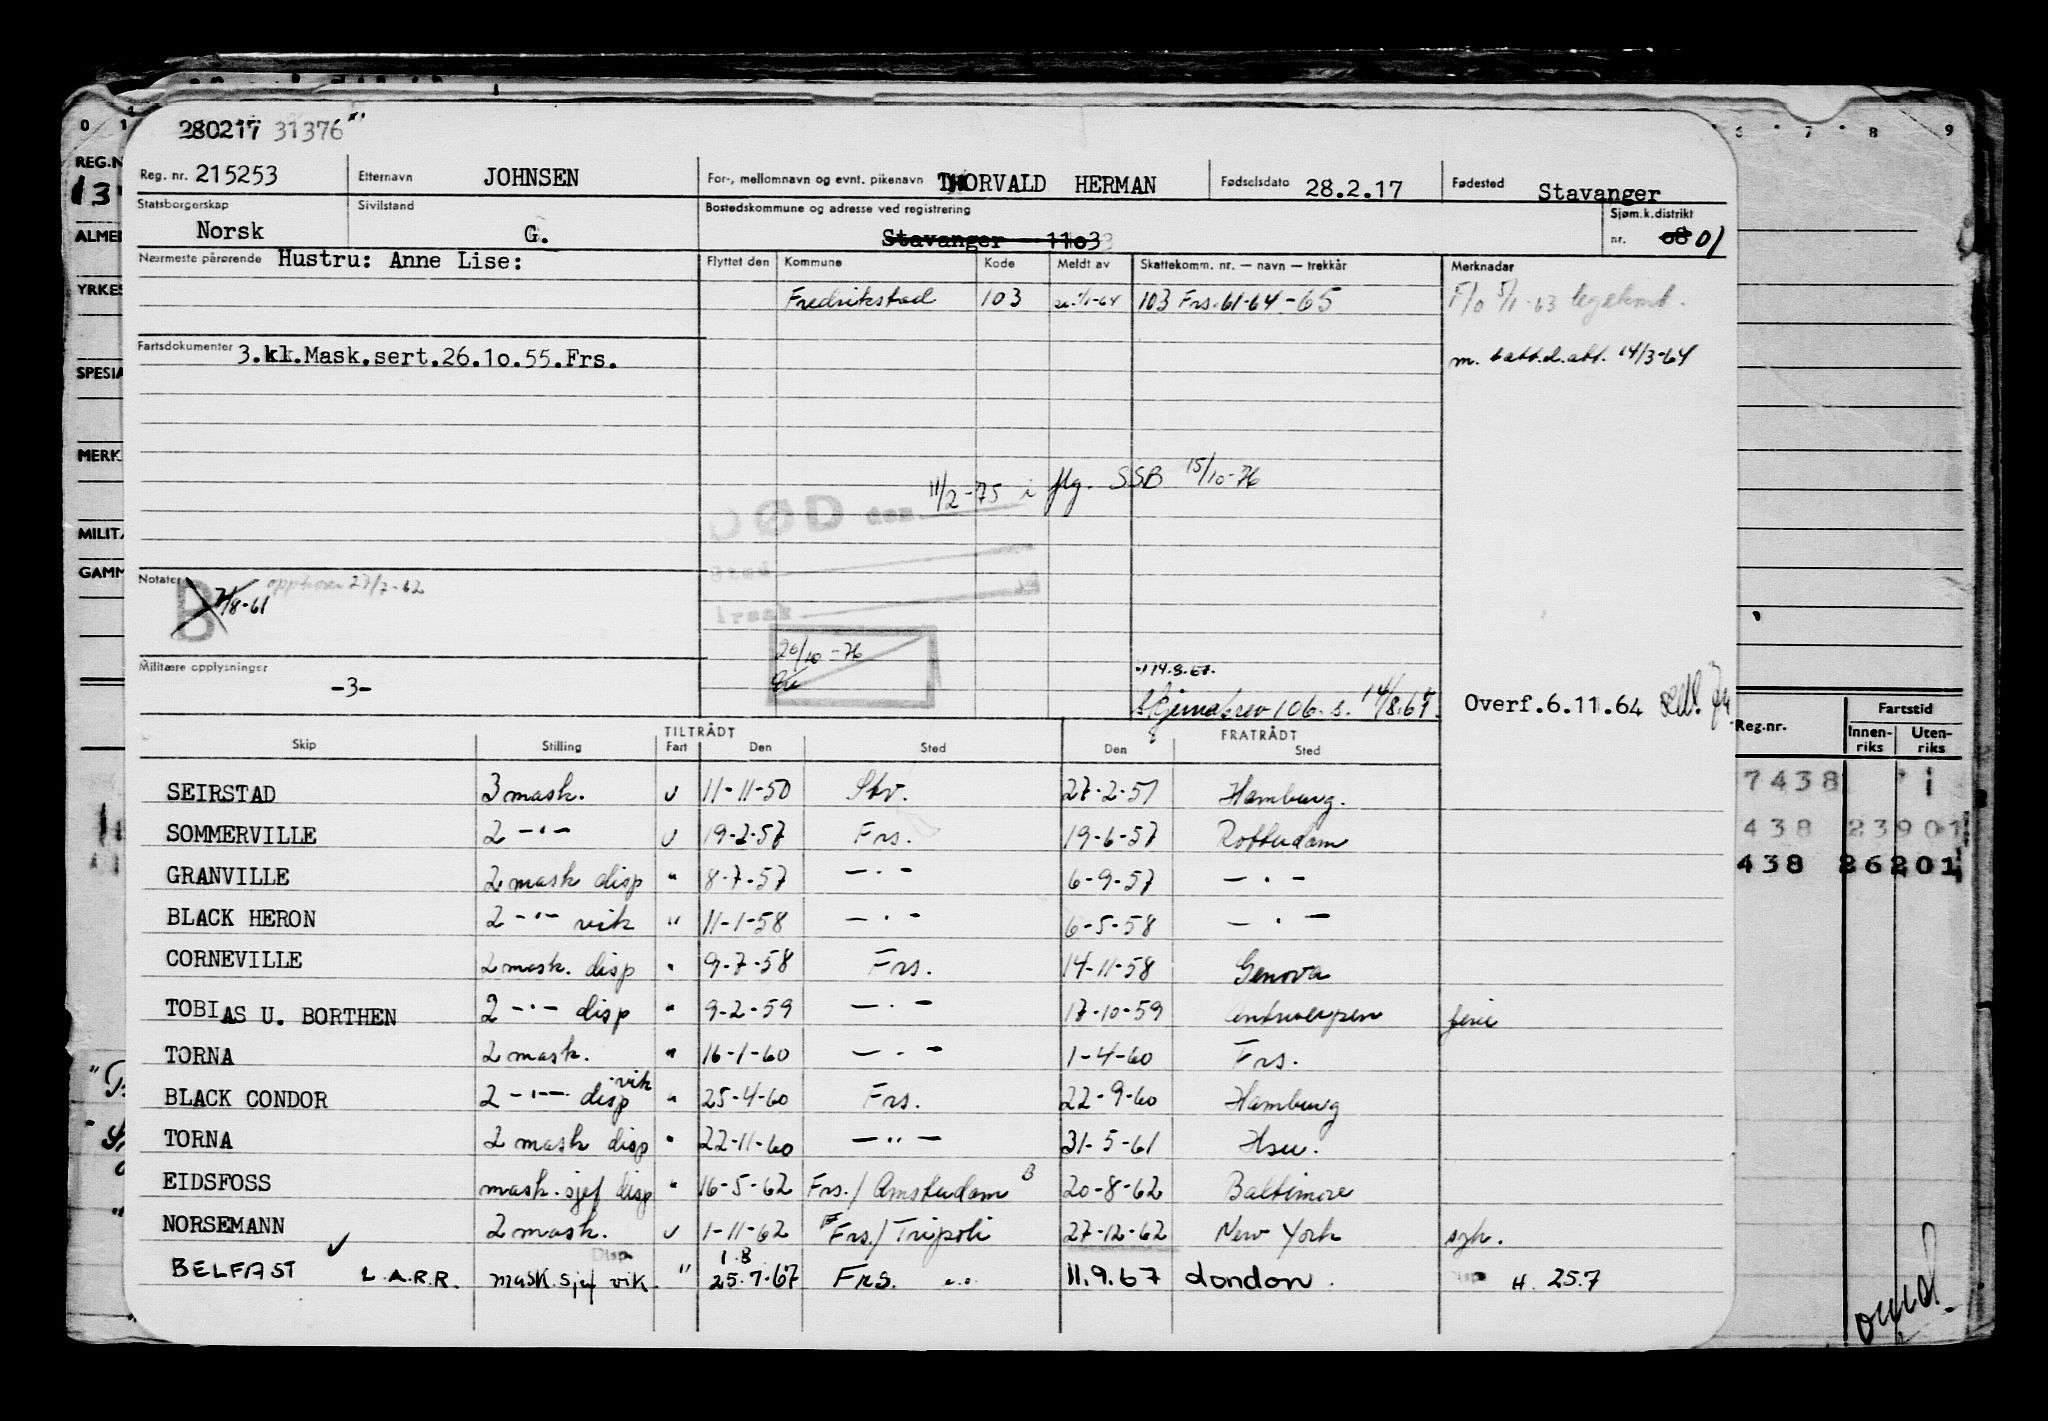 280217 31376
Reg. nr. 215253 Etternavn JOHNSEN For-, mellomnavn og evnt. pikenavn THORVALD HERMAN Fødselsdato 28.2.17 Fødested Stavanger
Statsborgerskap Norsk Sivilstand G. Bostedskommune og adresse ved registrering Stavanger - 11o3 Sjøm.k.distrikt nr. o8 01
Nærmeste pårørende Hustru: Anne Lise: Flyttet den Kommune Kode Meldt av Skattekomm. nr. — navn — trekkår Merknader
Fredrikstad 103 1/1-64 103 Frs. 61-64-65 F/o 5/1-63
Fartsdokumenter 3.kl.Mask.sert.26.1o.55.Frs. 14/3-64
11/2-75 i flg. SSB 15/10-76
DØD den
Sted
Årsak
Notater B 7/8-61 opphører 27/7-62
20/10-76
Militære opplysninger
-3-
14.8.67.
Skjemabrev 106.s. 14/8.67.
Overf.6.11.64
Skip Stilling TILTRÅDT Fart Den Sted FRATRÅDT Den Sted
SEIRSTAD 3 mask. U 11-11-50 Stv. 27-2-51 Hamburg.
SOMMERVILLE 2 -"- U 19-2-57 Frs. 19-6-57 Rotterdam
GRANVILLE 2 mask disp " 8-7-57 -"- 6-9-57 -"-
BLACK HERON 2 -"- vik " 11-1-58 -"- 6-5-58 -"-
CORNEVILLE 2 mask. disp " 9-7-58 Frs. 14-11-58 Genova
TOBIAS U. BORTHEN 2 -"- disp " 9-2-59 -"- 17-10-59 Antwerpen ferie
TORNA 2 mask. " 16-1-60 -"- 1-4-60 Frs.
BLACK CONDOR 2 -"- disp vik " 25-4-60 Frs. 22-9-60 Hamburg
TORNA 2 mask disp " 22-11-60 -"- 31-5-61
EIDSFOSS mask.sjef disp " 16-5-62 Frs./Amsterdam B 20-8-62 Baltimore
NORSEMANN 2 mask. U 1-11-62 Frs./Tripoli 27-12-62 New York syk.
BELFAST L.A.R.R. mask.sjef vik Disp " 1.8 25.7.67 Frs. 11.9.67 London. H. 25.7
0 1 7 8 9
REG.N
13
ALMEI
YRKES
SPESIA
MERK
MILITÆ
GAMM
Reg.nr. Fartstid
Innen-riks Uten-riks
7438 1
438 23901
438 26201